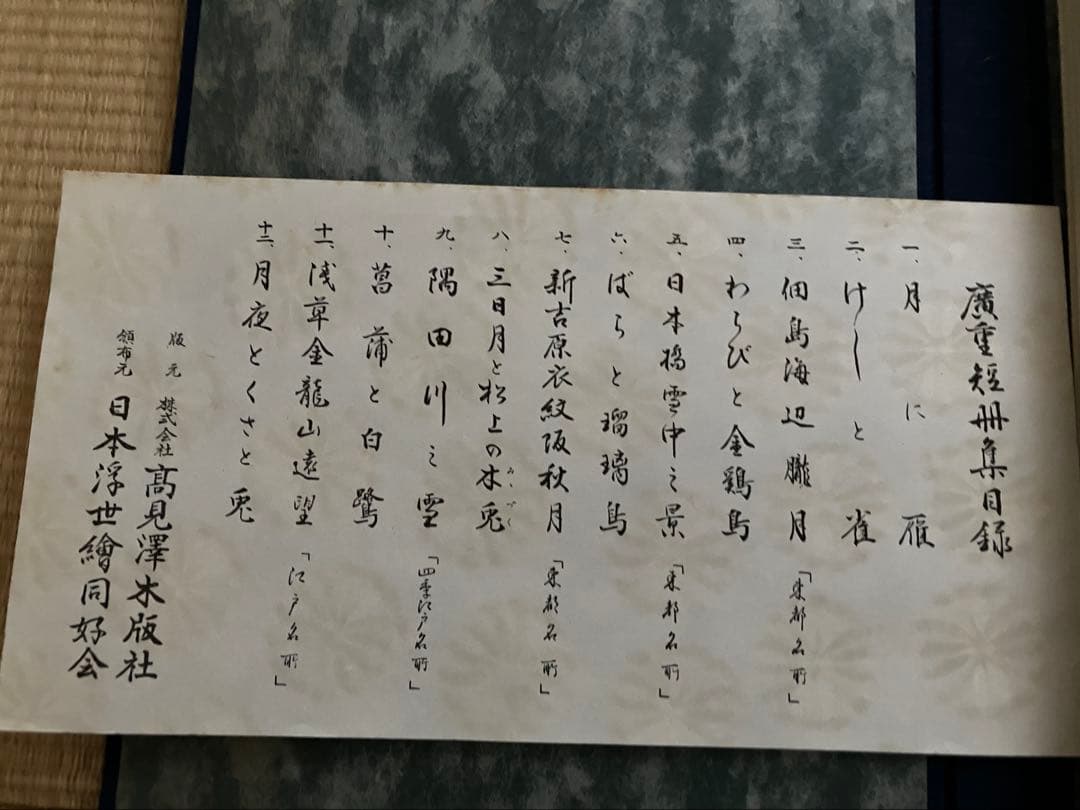 廣重短冊集目録
一、月に雁
二、けしと雀
三、佃島海辺朧月「東都名所」
四、わらびと金鶏鳥
五、日本橋雪中之景「東都名所」
六、ばらと瑠璃鳥
七、新吉原衣紋阪秋月「東都名所」
八、三日月と松上の木兎
みゝづく
九、隅田川之雪「四季江戸名所」
十、菖蒲と白鷺
十一、浅草金龍山遠望「江戸名所」
十二、月夜とくさと兎
版元 株式会社 高見澤木版社
頒布元 日本浮世繪同好会